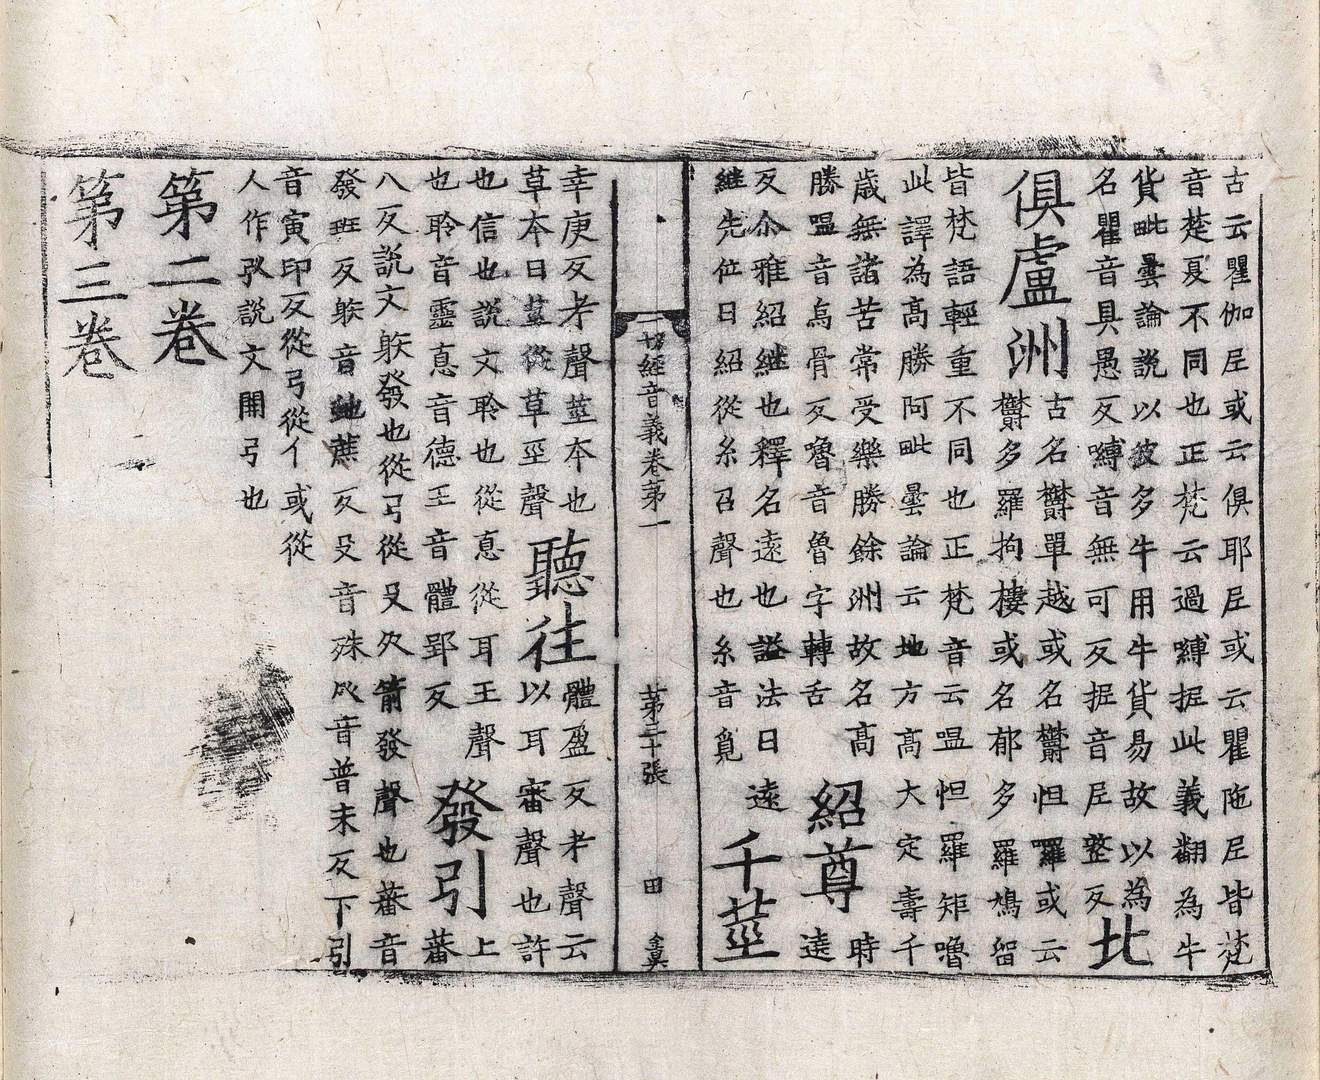 古云瞿伽尼或云俱耶尼或云瞿陁尼皆梵
音楚夏不同也正梵云過嚩抳此義翻為牛
貨毗曇論說以彼多牛用牛貨易故以為
名瞿音具愚反嚩音無可反抳音尼整反
北
俱盧洲
古名欝單越或名欝怛羅或云
欝多羅拘樓或名郁多羅鳩留
皆梵語輕重不同也正梵音云嗢怛羅矩嚕
此譯為高勝阿毗曇論云地方高大定壽千
歲無諸苦常受樂勝餘洲故名高
勝嗢音烏骨反嚕音魯字轉舌
紹尊
時
遶
反尒雅紹継也釋名遠也謚法曰遠
継先位曰紹從糸召聲也糸音覓
千莖
一切經音義卷第一 第三十張 田
幸庚反考聲莖本也
草本曰莖從草巠聲
聽往
體盈反考聲云
以耳審聲也許
也信也說文聆也從悳從耳王聲
也聆音靈悳音德王音體郢反
發引
上
蕃
八反說文躲發也從弓從殳癶箭發聲也蕃音
發班反躲音虵蔗反殳音殊癶音普末反下引
音寅印反從弓從亻或從
人作說文開弓也
第二卷
第三卷